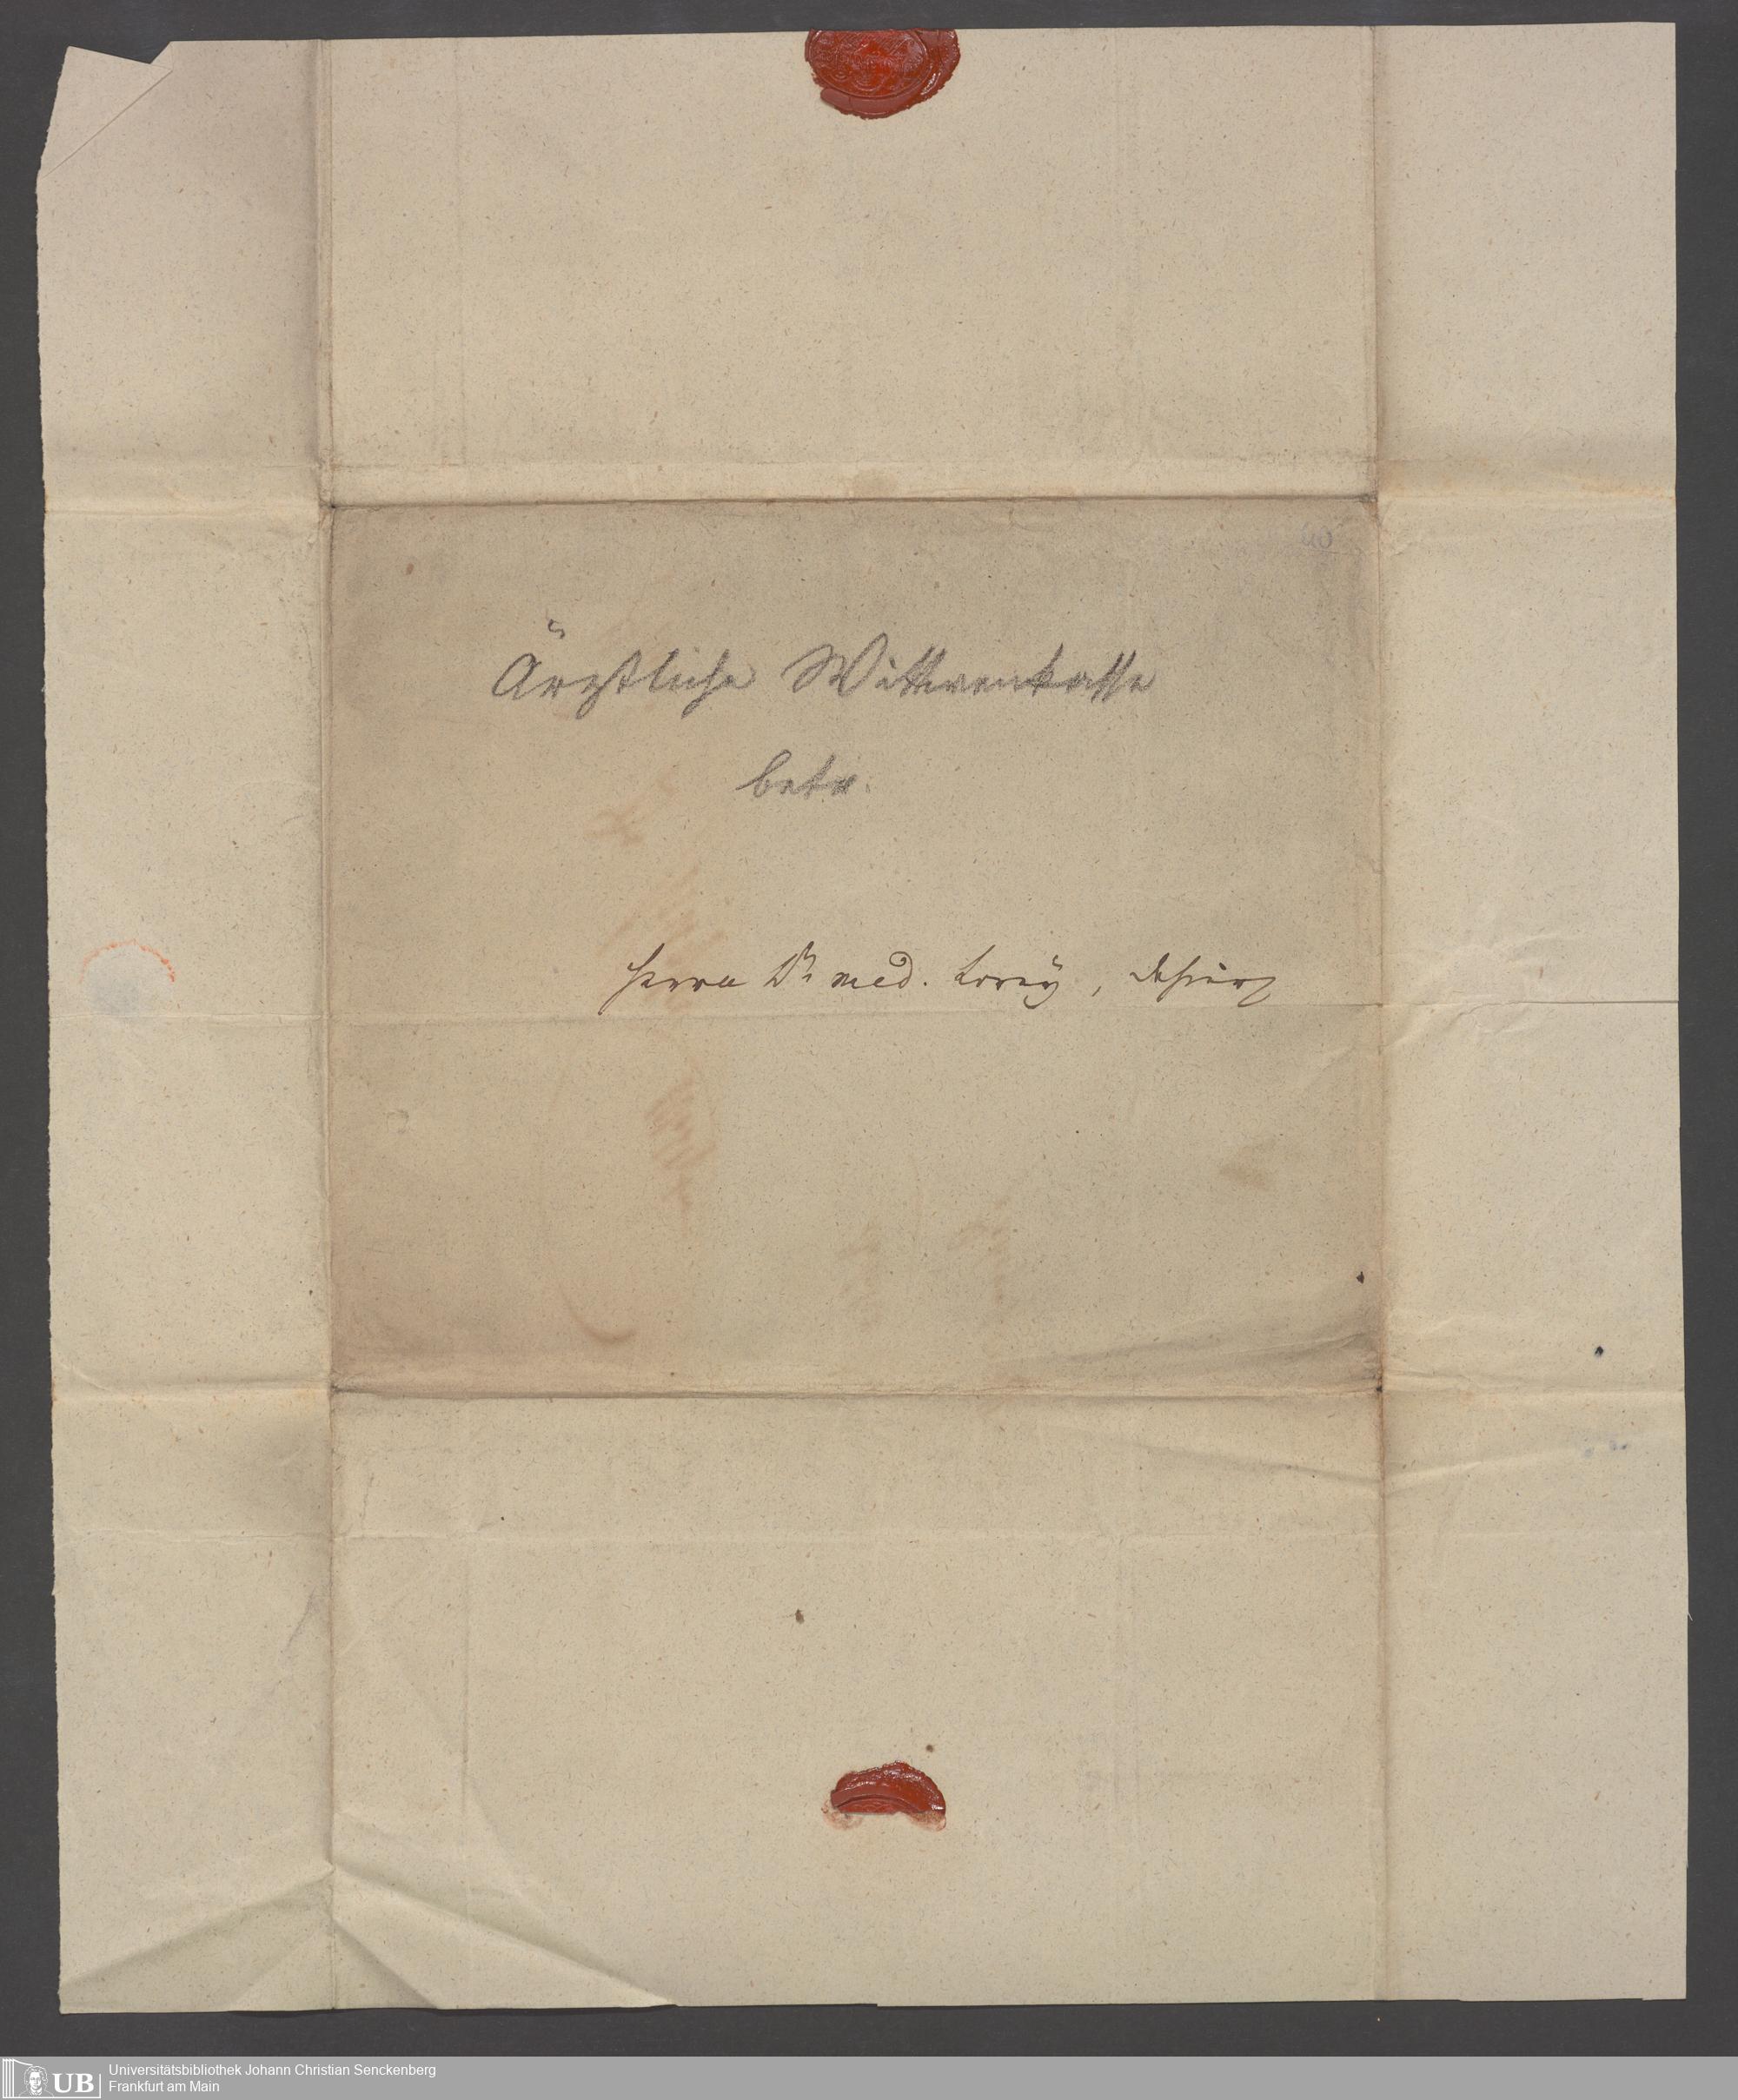 40
Ärztliche Wittwenkasse
betr.
Herrn Dr med. Lorey, dahier
Universitätsbibliothek Johann Christian Senckenberg
Frankfurt am Main
UB